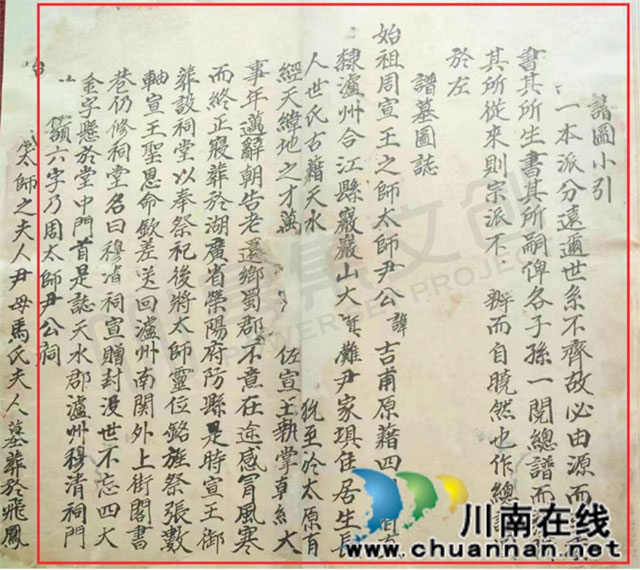 譜圖小引
一本派分遠邇世系不齊故必由源而
書其所生書其所嗣俾各子孫一閱總譜而
其所從來則宗派不辨而自曉然也作總
於左
譜墓圖誌
始祖周宣王之師太師尹公諱吉甫原藉四
隸瀘州合江縣巖巖山大灘尹家琪住居生長
人世氏古藉天水
經天緯地之才萬
伍宣王執掌
大
事年邁辭朝告老還鄉蜀郡不意在途感冒風寒
而終正寢葬於湖廣省滎陽府防縣是時宣王御
葬設祠堂以奉祭祀後將太師靈位銘旌祭張數
軸宣王聖恩命欽差送回瀘州南関外上街閣書
巷仍修祠堂名曰穆清祠宣贈封没世不忘四大
金字懸於堂中門首是誌天水郡瀘州穆清祠門
額六字乃周太師尹公祠
太師之夫人尹母馬氏夫人墓葬於飛鳳
川南在线
www.chuannan.net